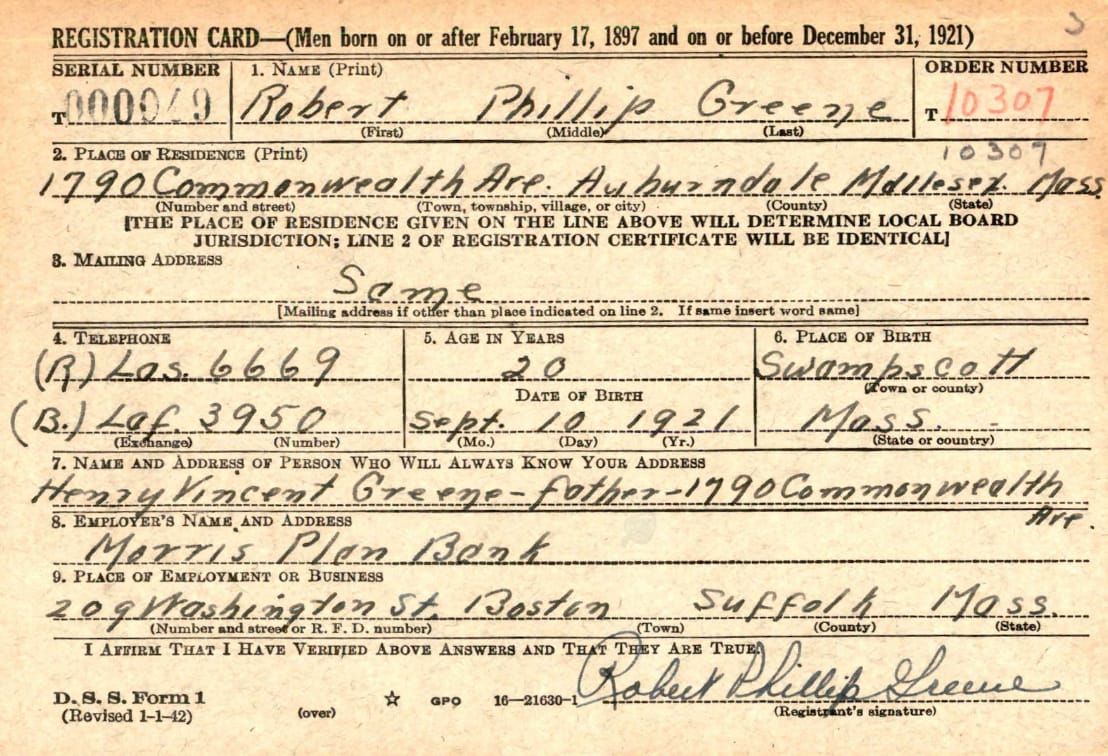 REGISTRATION CARD—(Men born on or after February 17, 1897 and on or before December 31, 1921)
SERIAL NUMBER 1. NAME (Print) ORDER NUMBER
T 000049 Robert Phillip Greene T 10307
(First) (Middle) (Last)
2. PLACE OF RESIDENCE (Print) 10307
1790 Commonwealth Ave. Auburndale Mdllesex. Mass.
(Number and street) (Town, township, village, or city) (County) (State)
[THE PLACE OF RESIDENCE GIVEN ON THE LINE ABOVE WILL DETERMINE LOCAL BOARD
JURISDICTION; LINE 2 OF REGISTRATION CERTIFICATE WILL BE IDENTICAL]
3. MAILING ADDRESS
Same
[Mailing address if other than place indicated on line 2. If same insert word same]
4. TELEPHONE 5. AGE IN YEARS 6. PLACE OF BIRTH
(R) Las. 6669 20 Swampscott
DATE OF BIRTH (Town or county)
(B.) Laf. 3950 Sept. 10 1921 Mass.
(Exchange) (Number) (Mo.) (Day) (Yr.) (State or country)
7. NAME AND ADDRESS OF PERSON WHO WILL ALWAYS KNOW YOUR ADDRESS
Henry Vincent Greene - father - 1790 Commonwealth
Ave.
8. EMPLOYER'S NAME AND ADDRESS
Morris Plan Bank
9. PLACE OF EMPLOYMENT OR BUSINESS
209 Washington St. Boston Suffolk Mass.
(Number and street or R. F. D. number) (Town) (County) (State)
I AFFIRM THAT I HAVE VERIFIED ABOVE ANSWERS AND THAT THEY ARE TRUE.
Robert Phillip Greene
D. S. S. Form 1 GPO 16—21630-1
(Revised 1-1-42) (over) (Registrant's signature)